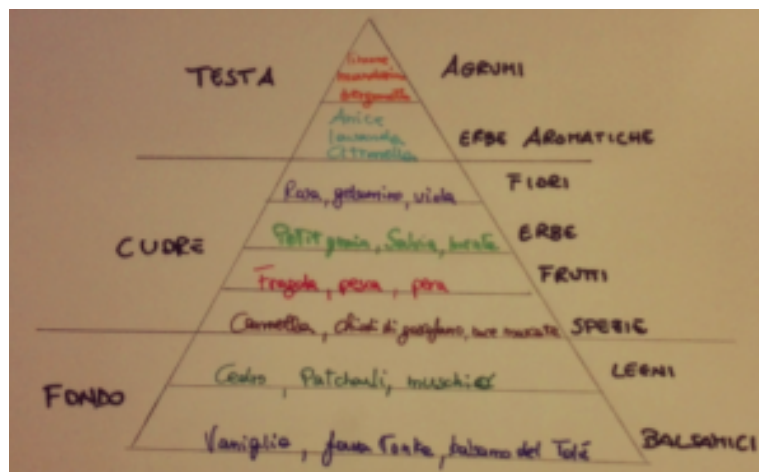 TESTA
limone
mandarino
bergamotto
AGRUMI
Anice
lavanda
Citronella
ERBE AROMATICHE
Rosa, gelsomino, viola
FIORI
CUORE
Petit grain, Salvia, menta
ERBE
Fragola, pesca, pera
FRUTTI
Cannella, chiodi di garofano, noce moscata
SPEZIE
Cedro, Patchouli, muschio
LEGNI
FONDO
Vaniglia, fava Tonka, balsamo del Tolù
BALSAMICI